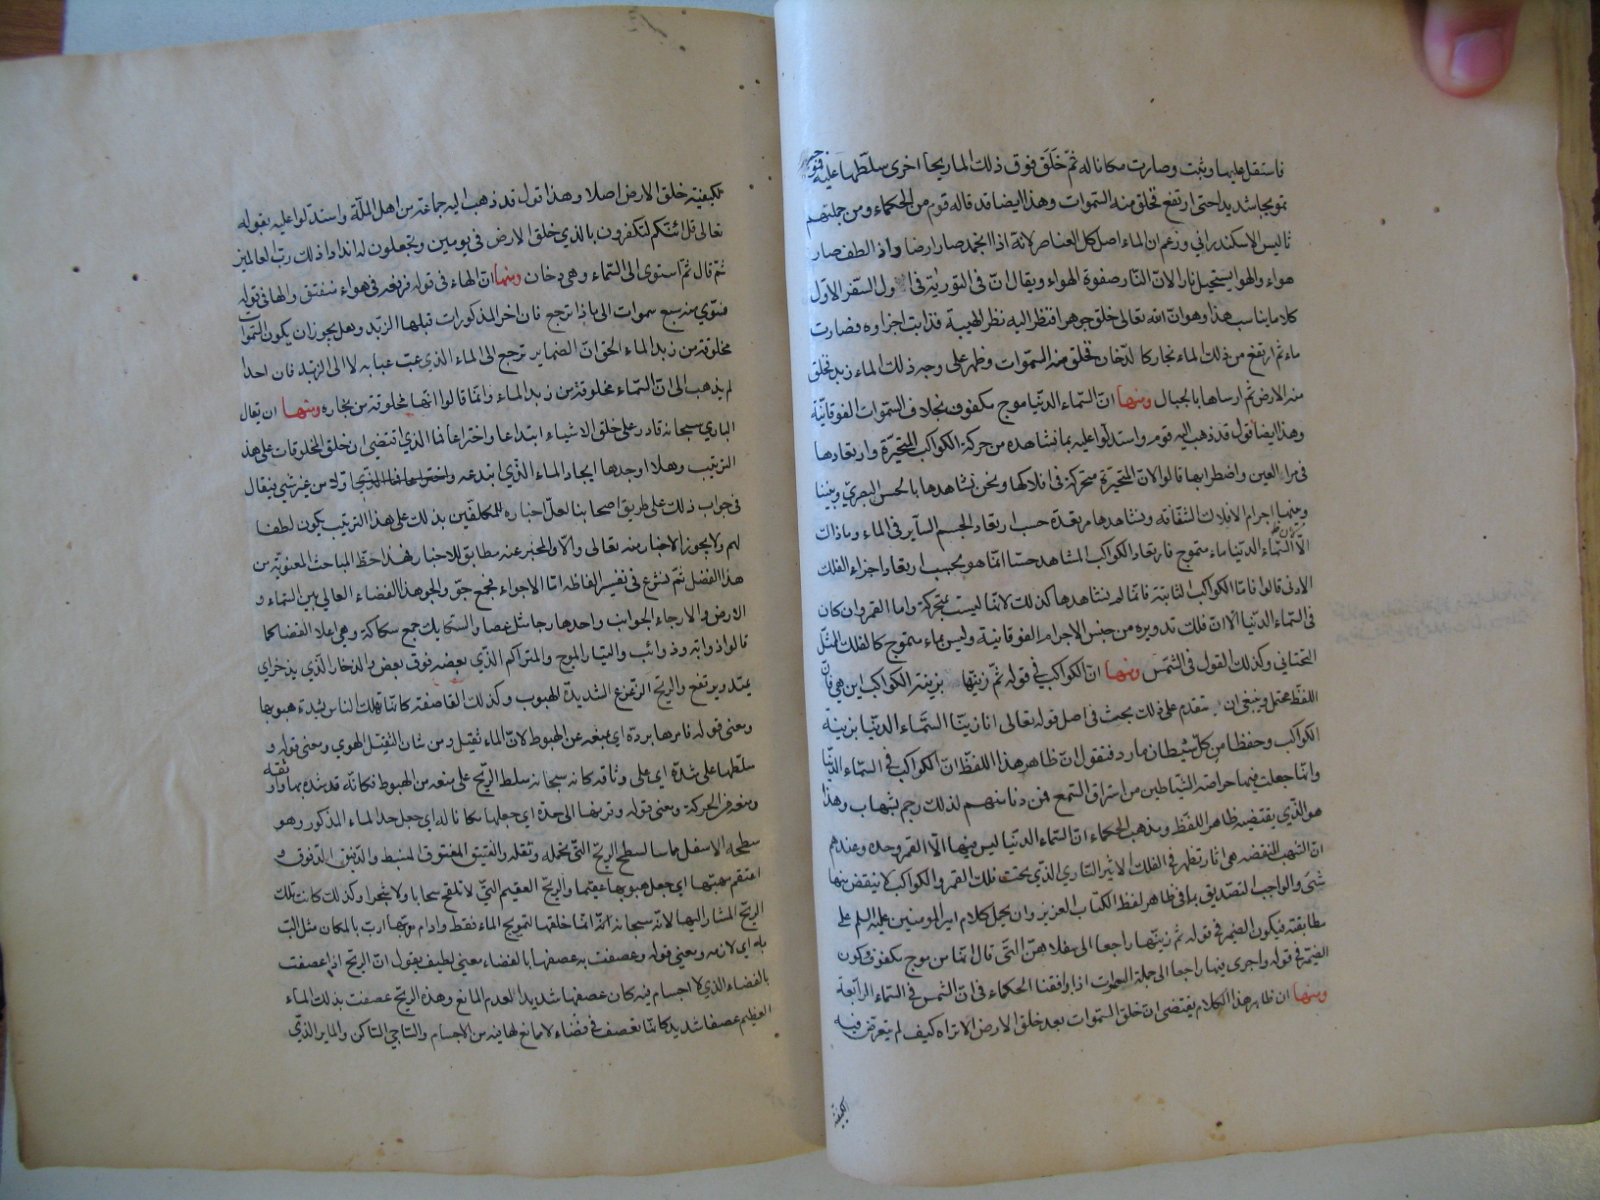 فاستقل عليها وثبت وصارت مكانا له ثم خلق فوق ذلك الماء ريحا اخرى سلطها عليه فموجته
تمويجا شديدا حتى ارتفع فخلق منه السموات وهذا ايضا قد قاله قوم من الحكماء ومن جملتهم
ثاليس الاسكندراني وزعم ان الماء اصل كل العناصر لانه اذا انجمد صار ارضا واذا لطف صار
هواء والهواء يستحيل نارا لان النار صفوة الهواء ويقال ان في التورية في اول السفر الاول
كلاما يناسب هذا وهو ان الله تعالى خلق جوهرا فنظر اليه نظر الهيبة فذابت اجزاوه فصارت
ماء ثم ارتفع من ذلك الماء بخار كالدخان فخلق منه السموات وظهر على وجه ذلك الماء زبد فخلق
منه الارض ثم ارساها بالجبال ومنها ان السماء الدنيا موج مكفوف بخلاف السموات الفوقانية
وهذا ايضا قول قد ذهب اليه قوم واستدلوا عليه بما نشاهده من حركة الكواكب المتحيرة وارتعادها
في مراى العين واضطرابها قالوا لان المتحيرة متحركة في افلاكها ونحن نشاهدها بالحس البصري وبيننا
وبينها اجرام الافلاك الشفافة ونشاهدها مرتعدة حسب ارتعاد الجسم الساير في الماء وما ذاك
الا لان السماء الدنيا ماء متموج فارتعاد الكواكب المشاهد حسا انما هو بحسب ارتعاد اجزاء الفلك
الادنى قالوا فاما الكواكب الثابتة فانما لم نشاهدها كذلك لانها ليست بمتحركة واما القمر وان كان
في السماء الدنيا الا ان فلك تدويره من جنس الاجرام الفوقانية وليس بماء متموج كالفلك الممثل
التحتاني وكذلك القول في الشمس ومنها ان الكواكب في قوله ثم زينها بزينة الكواكب اين هي فان
اللفظ محتمل وينبغي ان يتقدم على ذلك بحث في اصل قوله تعالى انا زينا السماء الدنيا بزينة
الكواكب وحفظا من كل شيطان مارد فنقول ان ظاهر هذا اللفظ ان الكواكب في السماء الدنيا
وانما جعلت فيها حراصة الشياطين من استراق السمع فمن دنا منهم لذلك رجم بشهاب وهذا
هو الذي يقتضيه ظاهر اللفظ ومذهب الحكماء ان السماء الدنيا ليس فيها الا القمر وحده وعندهم
ان الشهب المنقضة هي اثار تظهر في الفلك الاثير الناري الذي تحت فلك القمر والكواكب لا ينقض منها
شئ والواجب التصديق بما في ظاهر لفظ الكتاب العزيز وان يحمل كلام امير المومنين عليه السلم على
مطابقته فيكون الضمير في قوله ثم زينها راجعا الى سفلاهن التي قال انها من موج مكفوف ويكون
الضمير في قوله واجرى فيها راجعا الى جملة السموات اذا وافقنا الحكماء في ان الشمس في السماء الرابعة
ومنها ان ظاهر هذا الكلام يقتضى ان خلق السموات بعد خلق الارض الا تراه كيف لم يتعرض فيه
لكيفية
لكيفية خلق الارض اصلا وهذا قول قد ذهب اليه جماعة من اهل الملة واستدلوا عليه بقوله
تعالى قل ائنكم لتكفرون بالذي خلق الارض في يومين وتجعلون له اندادا ذلك رب العالمين
ثم قال ثم استوى الى السماء وهي دخان ومنها ان الهاء في قوله فرفعه في هواء منفتق والهاء في قوله
فسوى منه سبع سموات الى ماذا ترجع فان اخر المذكورات قبلها الزبد وهل يجوز ان يكون السموات
مخلوقة من زبد الماء الحق ان الضماير ترجع الى الماء الذي عب عبابه لا الى الزبد فان احدا
لم يذهب الى ان السماء مخلوقة من زبد الماء وانما قالوا انها مخلوقة من بخاره ومنها ان يقال
الباري سبحانه قادر على خلق الاشياء ابتداعا واختراعا فما الذي اقتضى ان خلق المخلوقات على هذا
الترتيب وهلا اوجدها ايجاد الماء الذي ابتدعه واختراعا فما الذي اولا من غير شئ فيقال
في جواب ذلك على طريق اصحابنا لعل اخباره للمكلفين بذلك على هذا الترتيب يكون لطفا
لهم ولا يجوز الاخبار منه تعالى والا والمخبر عنه مطابق للاخبار فهذا حظ المباحث المعنوية من
هذا الفصل ثم نشرع في تفسير الفاظه اما الاجواء فجمع جو والجو هذا الفضاء العالي بين السماء و
الارض والارجاء الجوانب واحدها رجا مثل عصا والسكايك جمع سكاكة وهي اعلا الفضاء كما
قالوا ذوابة وذوائب والتيار الموج والمتراكم الذي بعضه فوق بعض والزخار الذي يزخر اي
يمتد ويرتفع والريح الزعزع الشديدة الهبوب وكذلك القاصفة كانها تهلك الناس بشدة هبوبها
ومعنى قوله فامرها برده اي بمنعه عن الهبوط لان الماء ثقيل ومن شان الثقيل الهوي ومعنى قوله و
سلطها على شده اي على وثاقه كانه سبحانه سلط الريح على منعه من الهبوط فكانه قد شده بها واوثقه
ومنعه من الحركة ومعنى قوله وقرنها الى حده اي جعلها مكانا له اي جعل حد الماء المذكور وهو
سطحه الاسفل مماسا لسطح الريح التي تحمله وتقله والفتيق المفتوق المنبسط والدفيق المدفوق و
اعتقم مهبها اي جعل هبوبها عقيما والريح العقيم التي لا تلقح سحابا ولا شجرا وكذلك كانت تلك
الريح المشار اليها لانه سبحانه انما خلقها لتمويج الماء فقط وادام مربها ارب بالمكان مثل الب
به اي لازمه ومعنى قوله وعصفت به عصفها بالفضاء معنى لطيف يقول ان الريح اذا عصفت
بالفضاء الذي لا اجسام فيه كان عصفها شديدا لعدم المانع وهذه الريح عصفت بذلك الماء
العظيم عصفا شديدا كانها تعصف في فضاء لا مانع لها فيه من الاجسام والساجي الساكن والماير الذي